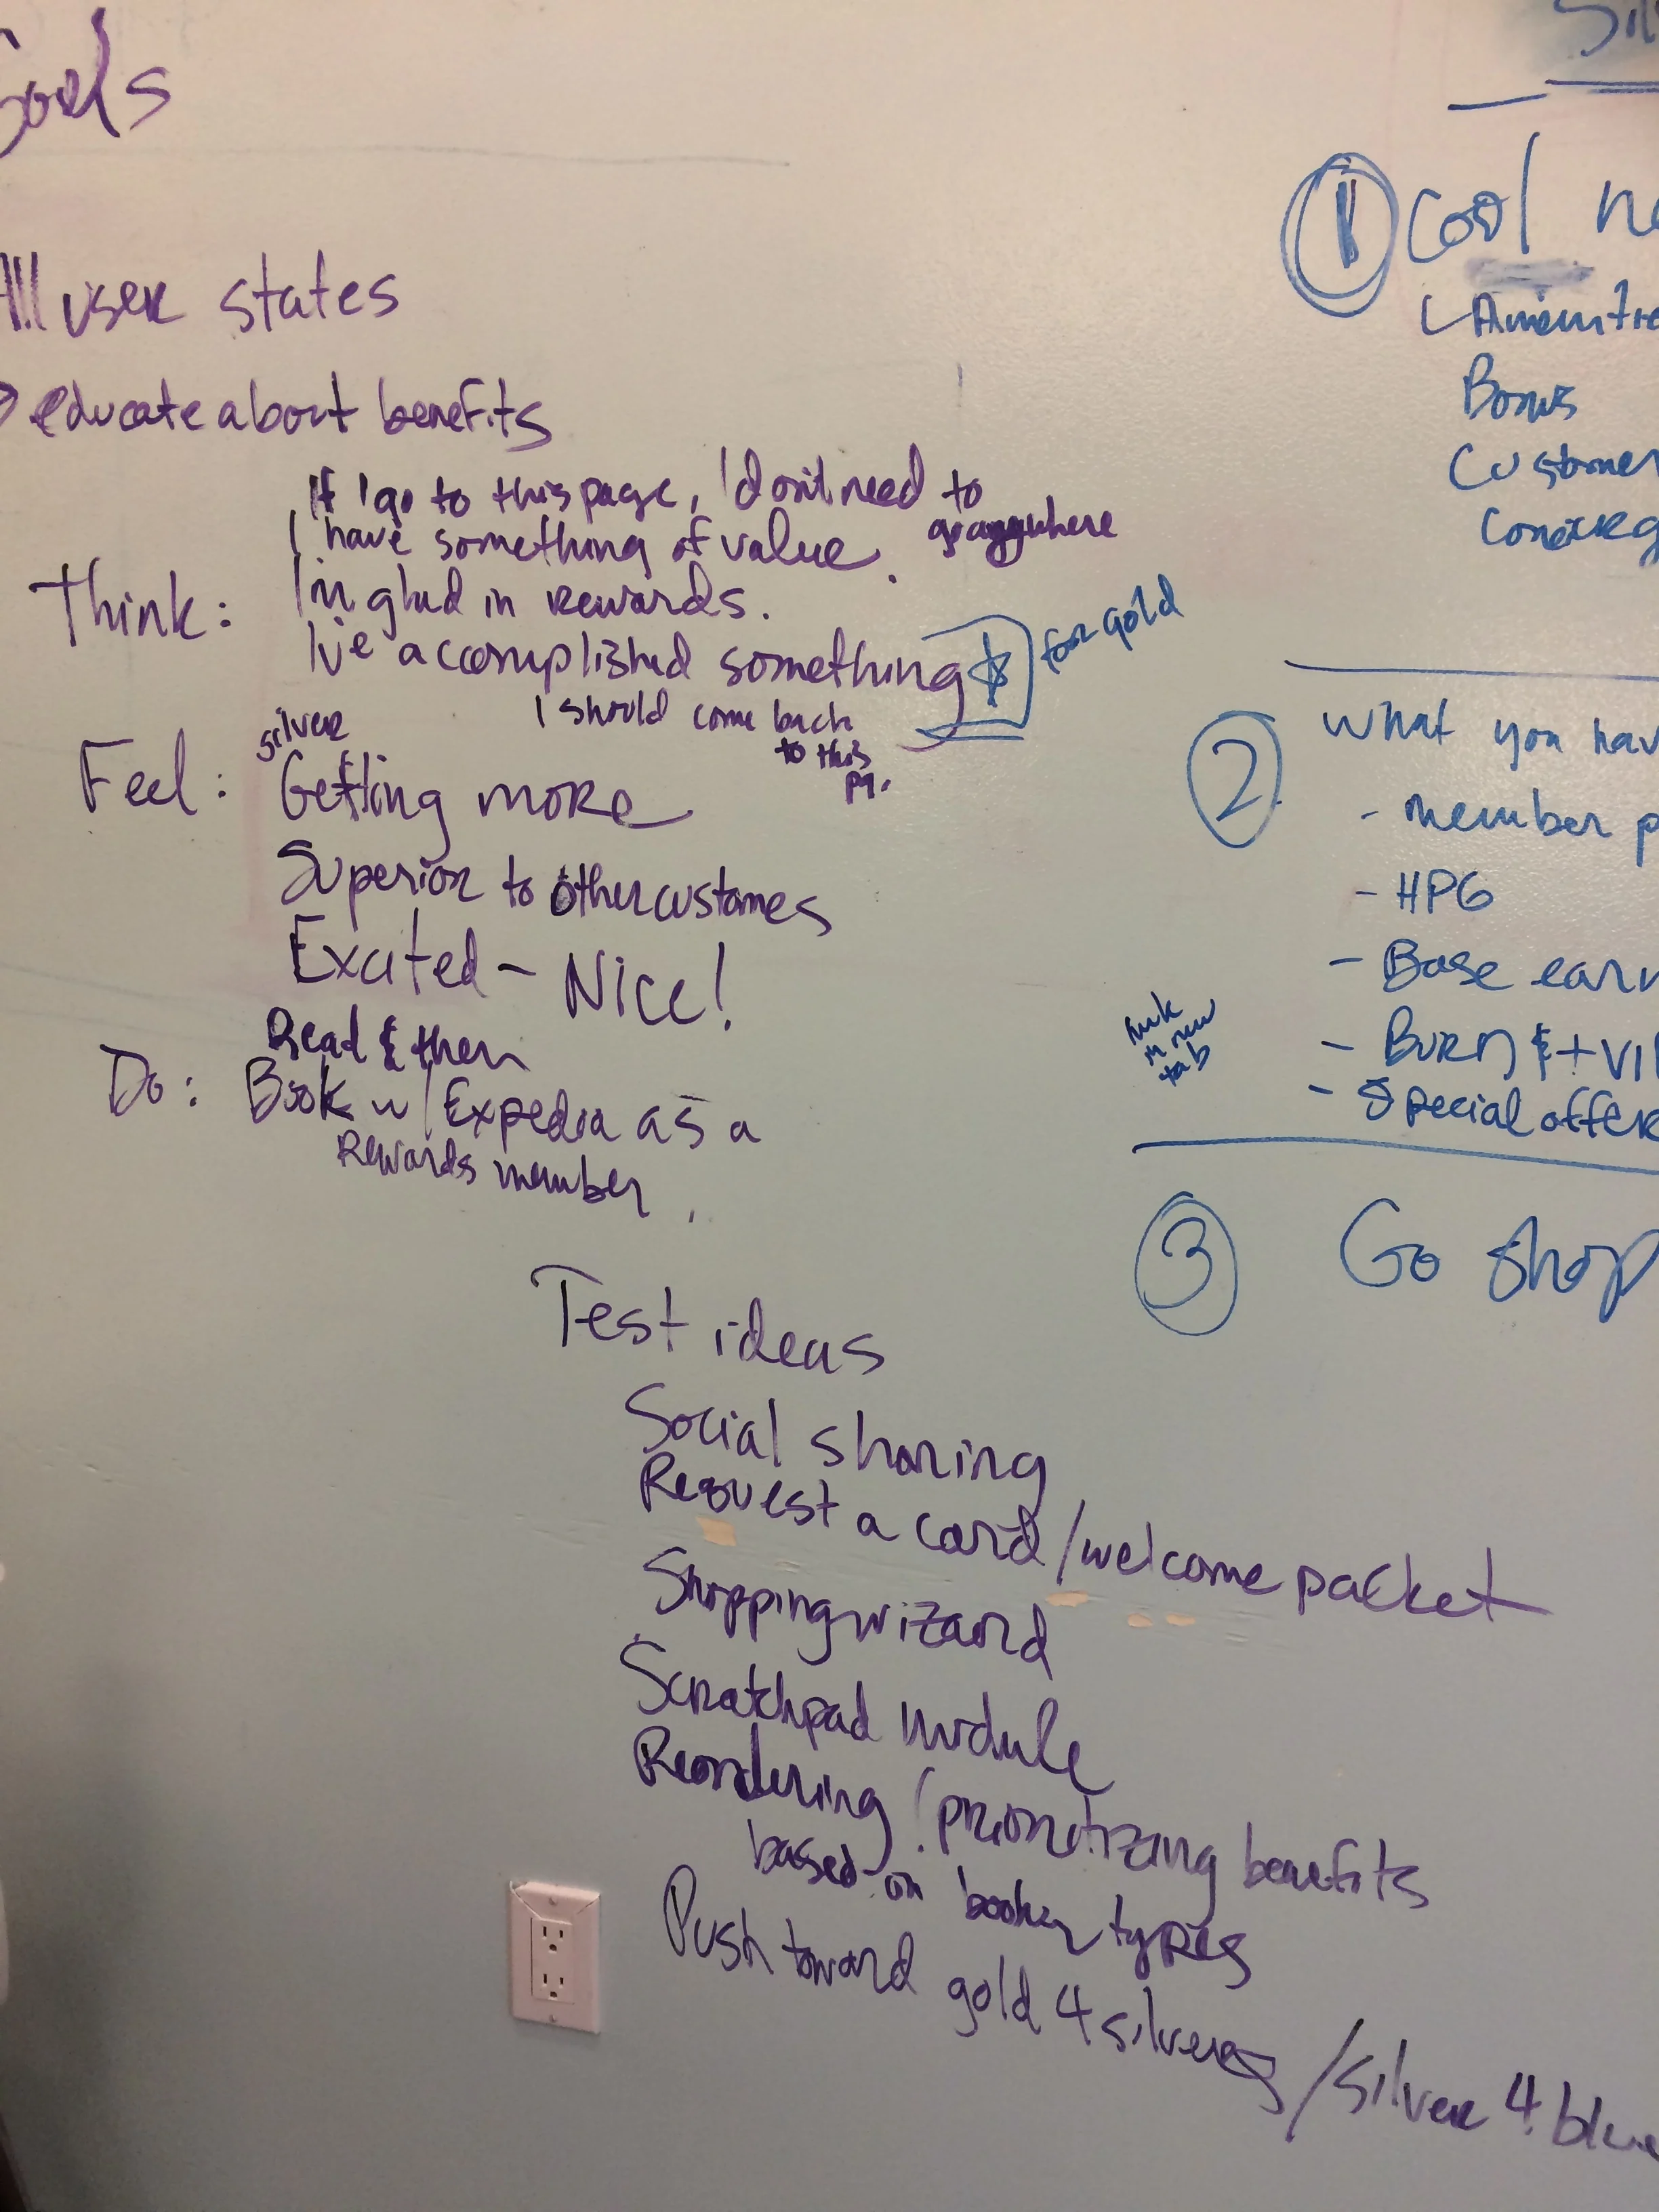 Goals
All user states
→ educate about benefits
If I go to this page, I don't need to
go anywhere
I have something of value.
Think: I'm glad in rewards.
I've accomplished something
I should come back
to this
pg.
$ for gold
silver
Feel: Getting more
Superior to other customes
Excited - Nice!
Read & then
Do: Book w/ Expedia as a
Rewards member
Test ideas
Social sharing
Request a card/welcome packet
Shopping wizard
Scratchpad module
Reordering/prioritizing benefits
based on booker types
Push toward gold 4 silvers/silver 4 blue
Sil
1 Cool ne
Amenitie
Bonus
Customer
Concierg
2 What you hav
- member p
- HPG
- Base earn
- Burn & + VI
- Special offer
in new
tab
3 Go shop